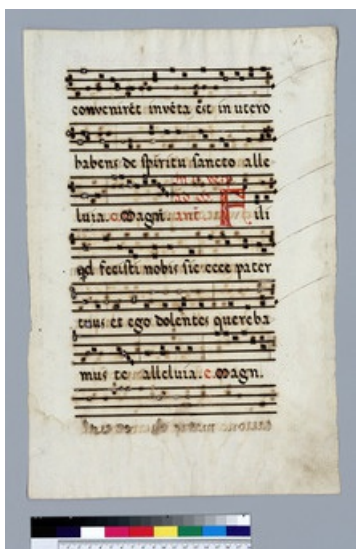 convenirēt invēta ēst in utero
habens de spiritu sancto alle
luia. c. Magn. ant. Fili
qd fecisti nobis sic ecce pater
tuus et ego dolentes quereba
mus te alleluia. c. Magn.